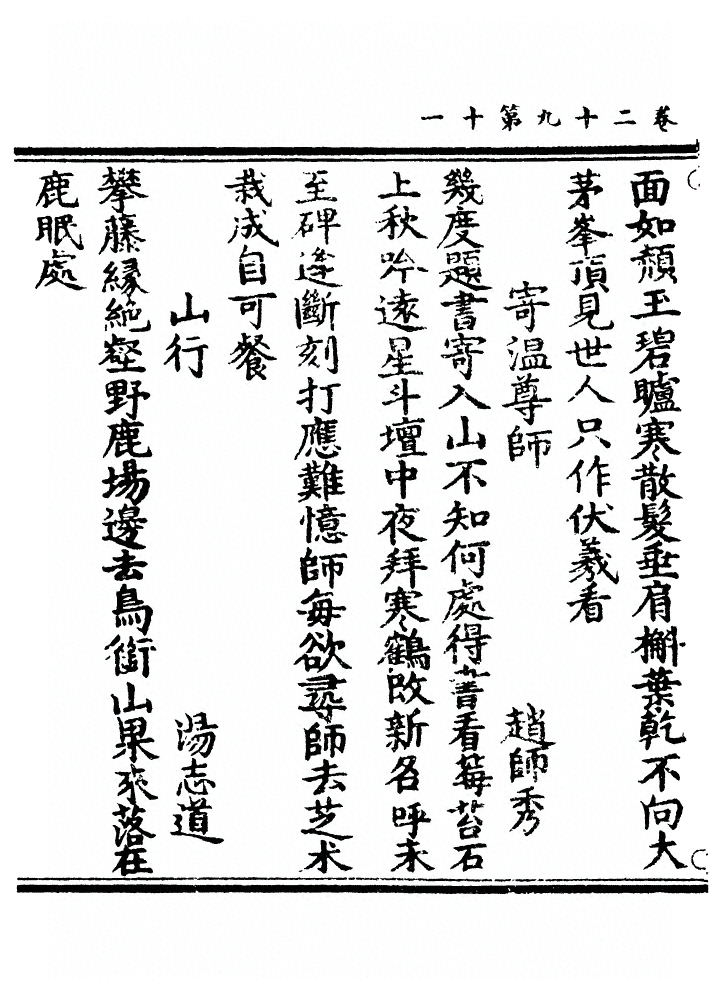 卷二十九第十一
面如頳玉碧矑寒散髮垂肩槲葉乾不向大
茅峯頂見世人只作伏羲看
寄溫尊師
趙師秀
幾度題書寄入山不知何處得書看莓苔石
上秋吟遠星斗壇中夜拜寒鶴改新名呼未
至碑逢斷刻打應難憶師每欲尋師去芝术
栽成自可餐
山行
湯志道
攀藤緣絶壑野鹿塲邊去鳥銜山果來落在
鹿眠處